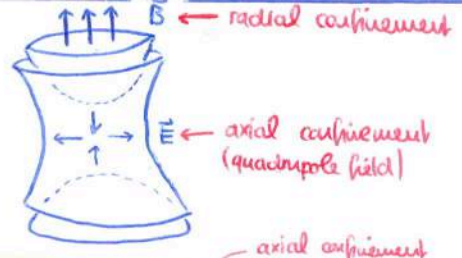 B ← radial confinement
E ← axial confinement
(quadrupole field)
axial confinement